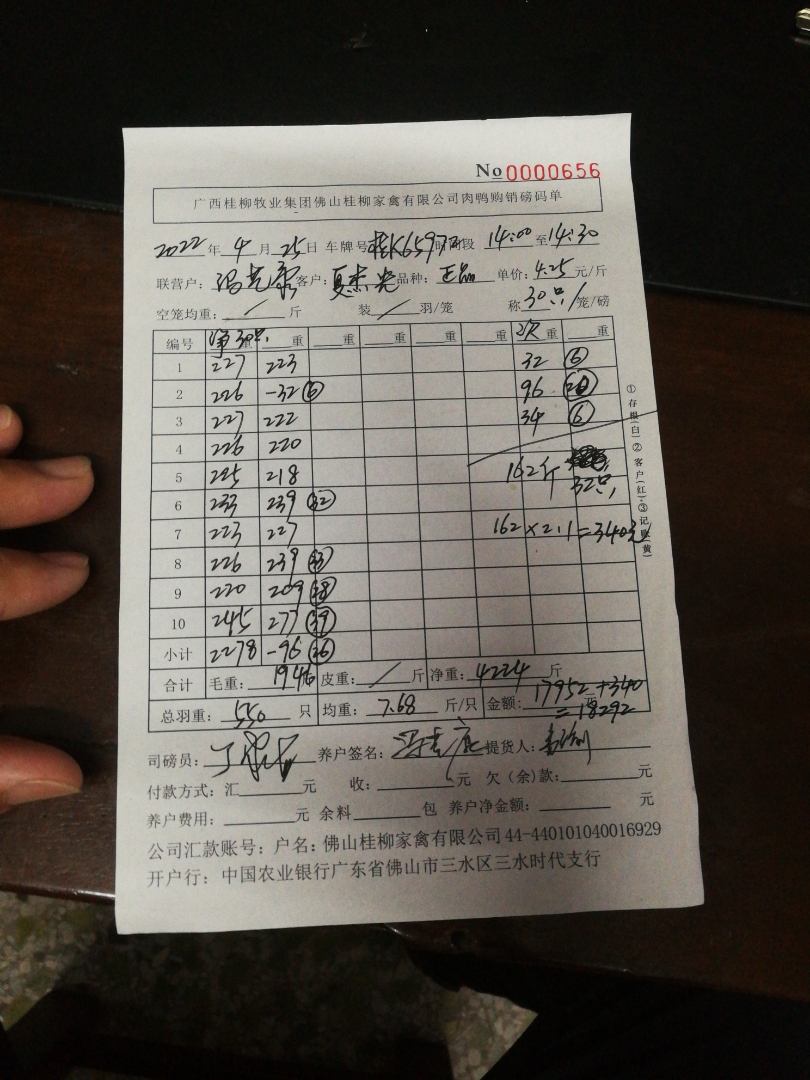 No 0000656
广西桂柳牧业集团佛山桂柳家禽有限公司肉鸭购销磅码单
2022 年 4 月 25 日 车牌号 桂K6597 时间段 14:00 至 14:30
联营户： 客户： 品种： 正品 单价：4.25 元/斤
空笼均重： / 斤 装 / 羽/笼 称 30只/ 笼/磅
编号 净30只 重 重 重 重 重 重 次 重 重
1 227 223 32 ⑥
2 226 -32 ⑥ 96 ⑳
3 227 222 34 ⑥
4 226 220
5 225 218 162斤 32只
6 233 239 ㉜
7 223 227 162×2.1=340元
8 226 239 ㉝
9 220 209 ㉘
10 245 277 ㊴
小计 2278 -96
合计 毛重： 1946 皮重： / 斤 净重：4224 斤
总羽重： 550 只 均重： 7.68 斤/只 金额： 17952+340
=18292
司磅员： 养户签名： 提货人：
付款方式：汇 元 收： 元 欠（余）款： 元
养户费用： 元 余料 包 养户净金额： 元
公司汇款账号：户名：佛山桂柳家禽有限公司44-440101040016929
开户行：中国农业银行广东省佛山市三水区三水时代支行
①存根(白)②客户(红)③记账(黄)